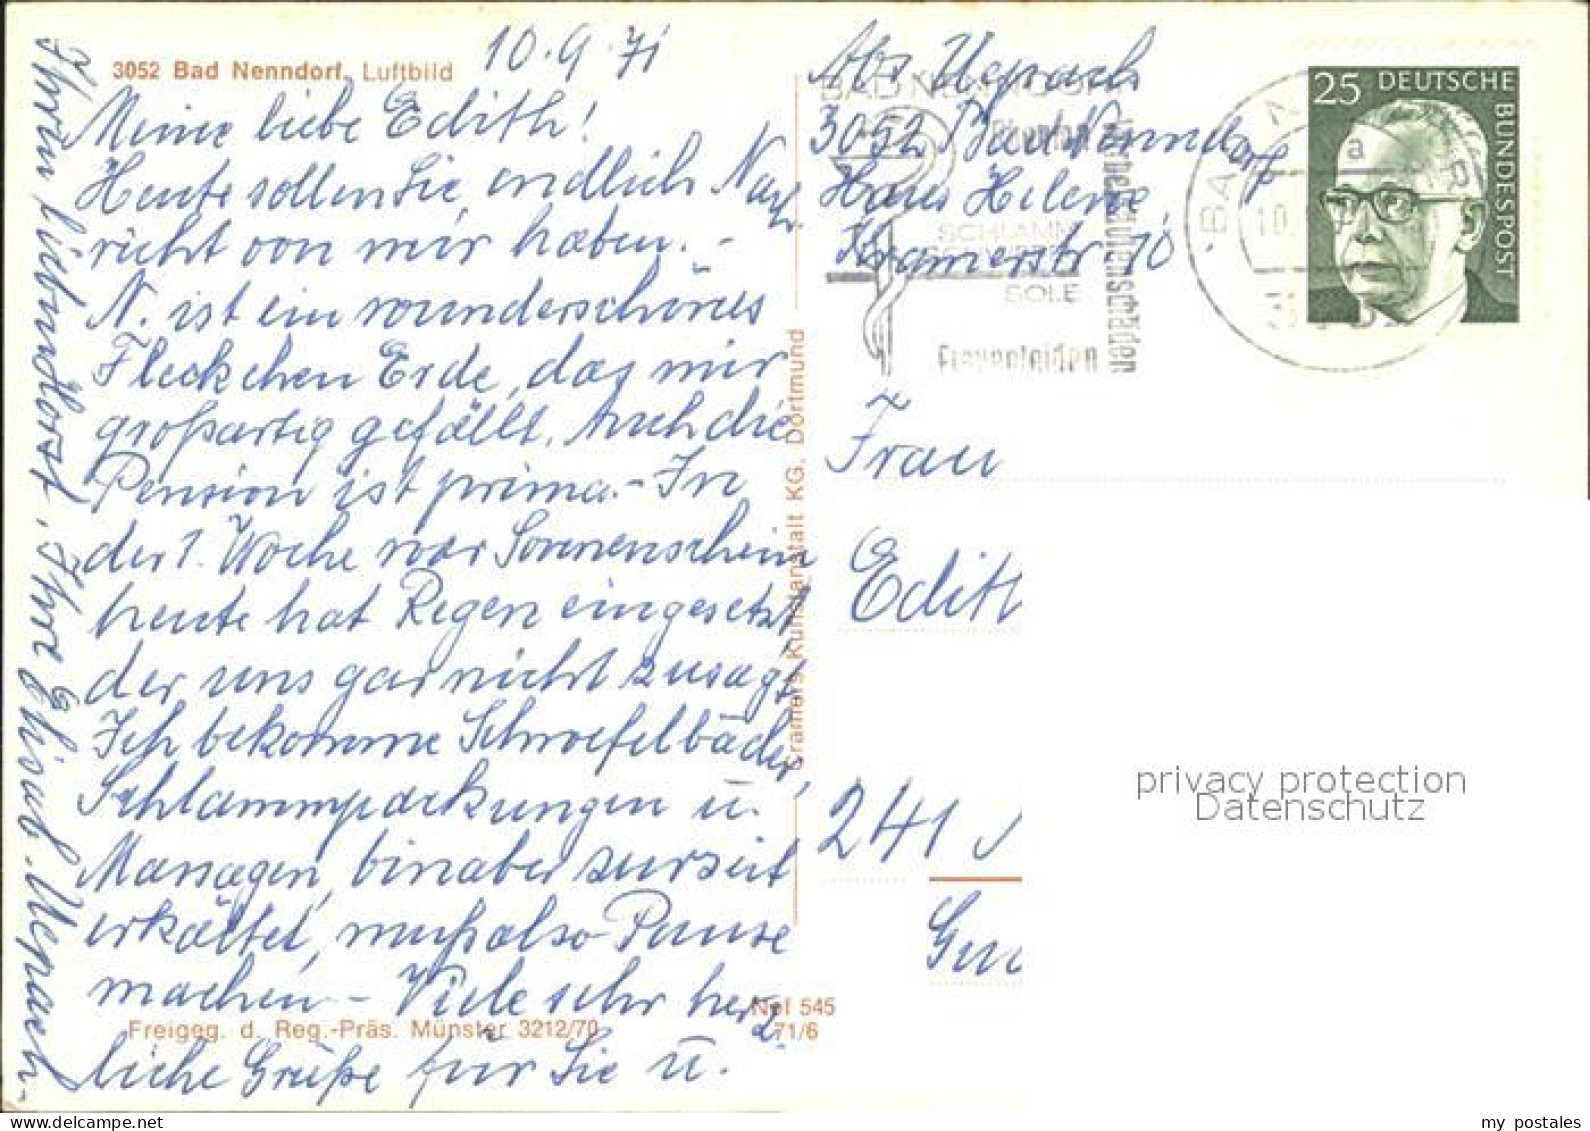 3052 Bad Nenndorf, Luftbild
10.9.71
Meine liebe Edith!
Heute sollen Sie endlich Nach-
richt von mir haben. -
N. ist ein wunderschönes
Fleckchen Erde, das mir
großartig gefällt. Auch die
Pension ist prima. - In
der 1. Woche war Sonnenschein
heute hat Regen eingesetzt,
der uns gar nicht zusagt.
Ich bekomme Schwefelbäder,
Schlammpackungen u.
Massagen, bin aber zur Zeit
erkältet, muß also Pause
machen - Viele sehr herz-
liche Grüße für Sie u.
Ihre Elisab.
Freigeg. d. Reg.-Präs. Münster 3212/70
Nef 545
71/6
Cramers Kunstanstalt KG, Dortmund
Abs
3052 Bad Nenndorf
Haus Helene,
Kramerstr 10.
BAD NENNDORF
SCHLAMM
SCHWEFEL
SOLE
Frauenleiden
25 DEUTSCHE
BUNDESPOST
Frau
Edith
241
privacy protection
Datenschutz
my postales